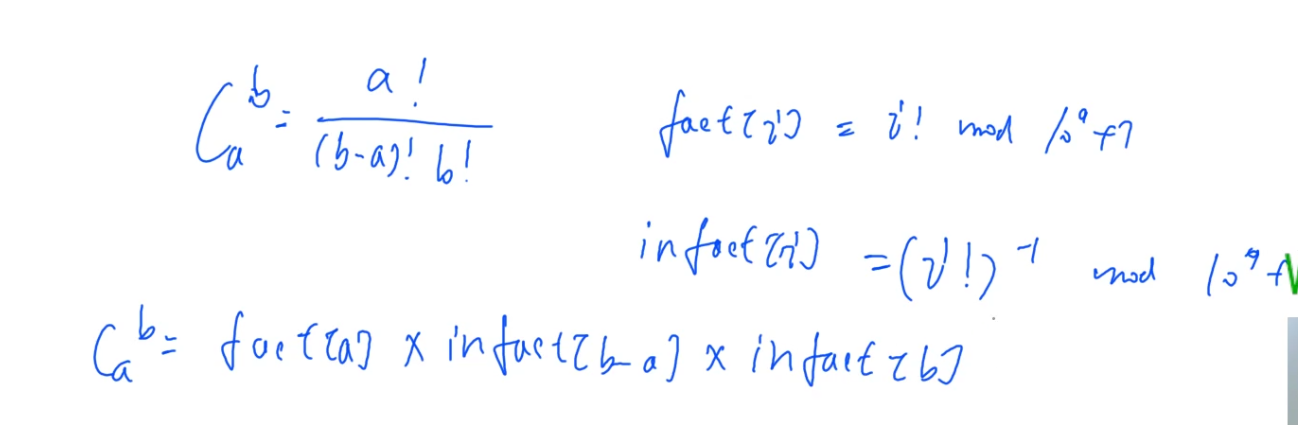 C_a^b = a! / (b-a)! b!
fact[i] = i! mod 10^9+7
infact[i] = (i!)^-1 mod 10^9+
C_a^b = fact[a] × infact[b-a] × infact[b]